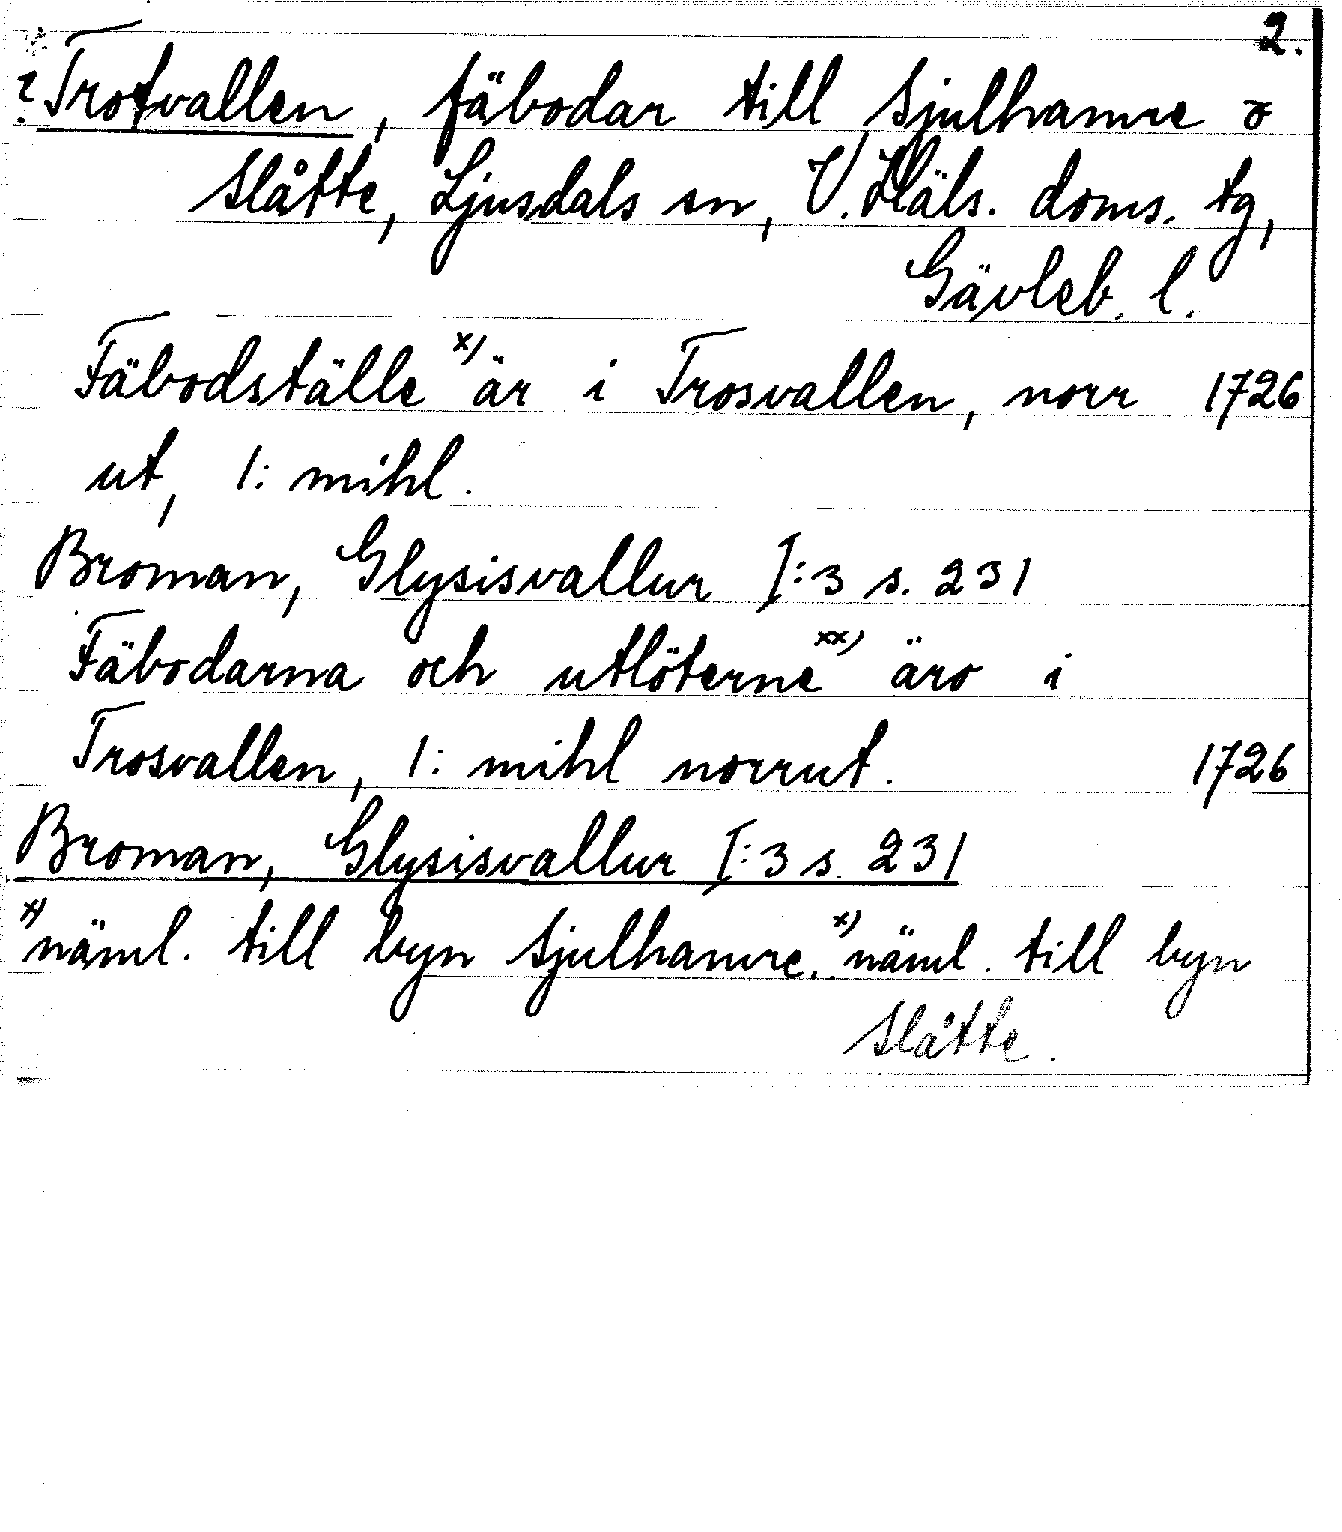 2.
? Trotvallen, fäbodar till Sjulhamre o
Slåtte, Ljusdals sn, V. Häls. doms. tg,
Gävleb. l.
Fäbodställe x) är i Trosvallen, norr 1726
ut, 1: mihl.
Broman, Glysisvallur I:3 s. 231
Fäbodarna och utlöterne xx) äro i
Trosvallen, 1: mihl norrut. 1726
Broman, Glysisvallur I:3 s. 231
x) näml. till byn Sjulhamre. x) näml. till byn
Slåtte.